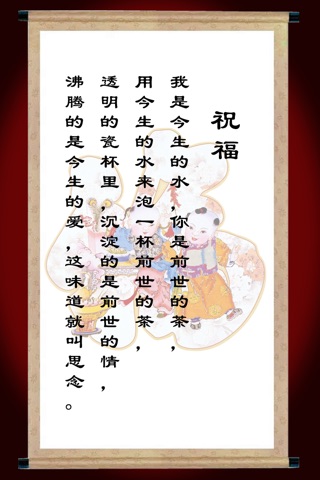 祝福
我是今生的水，你是前世的茶，
用今生的水来泡一杯前世的茶，
透明的瓷杯里，沉淀的是前世的情，
沸腾的是今生的爱，这味道就叫思念。